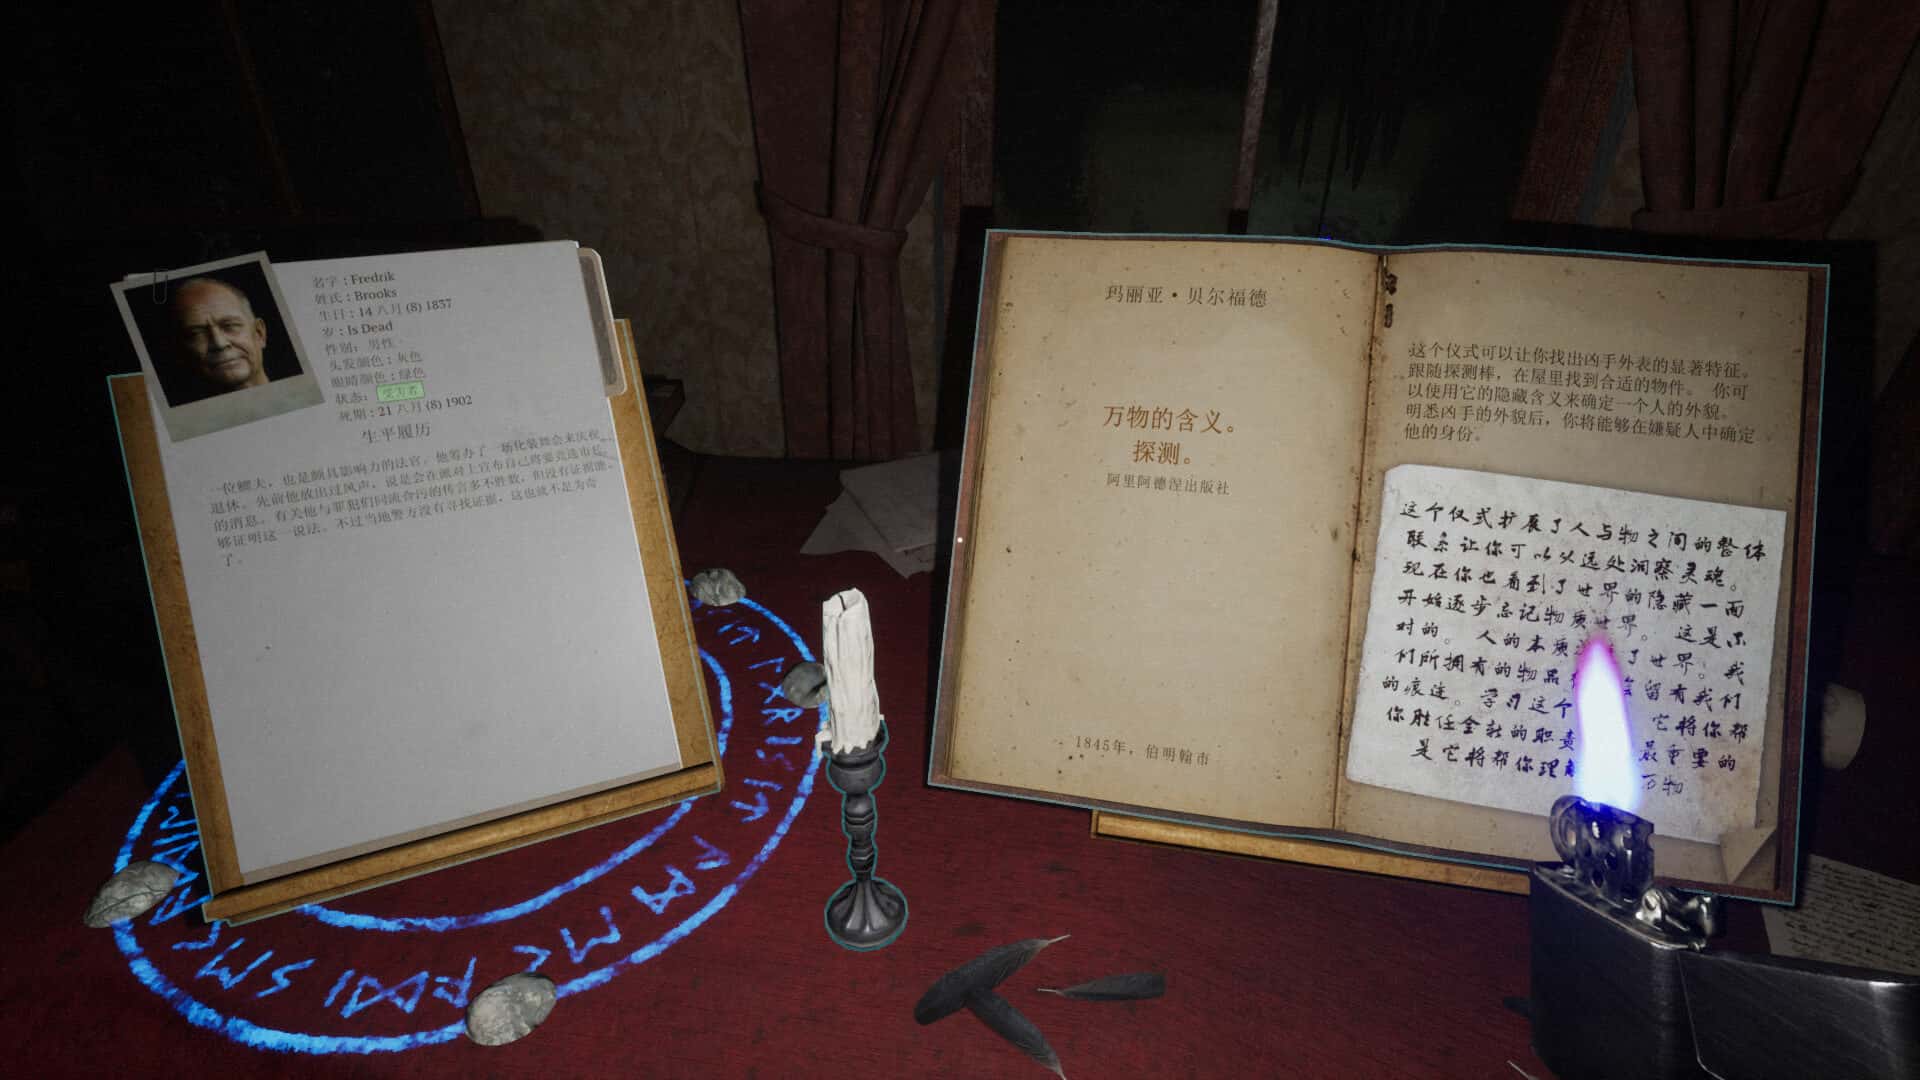 名字：Fredrik
姓氏：Brooks
生日：14 八月 (8) 1837
岁：Is Dead
性别：男性
头发颜色：灰色
眼睛颜色：绿色
状态：受害者
死期：21 八月 (8) 1902
生平履历
一位鳏夫，也是颇具影响力的法官。他筹办了一场化装舞会来庆祝
退休。先前他放出过风声，说是会在派对上宣布自己将要竞选市长
的消息。有关他与罪犯们同流合污的传言多不胜数，但没有证据能
够证明这一说法。不过当地警方没有寻找证据，这也就不足为奇
了。
玛丽亚·贝尔福德
万物的含义。
探测。
阿里阿德涅出版社
1845年，伯明翰市
这个仪式可以让你找出凶手外表的显著特征。
跟随探测棒，在屋里找到合适的物件。 你可
以使用它的隐藏含义来确定一个人的外貌。
明悉凶手的外貌后，你将能够在嫌疑人中确定
他的身份。
这个仪式扩展了人与物之间的整体
联系让你可以从远处洞察灵魂。
现在你也看到了世界的隐藏一面
开始逐步忘记物质世界。 这是
对的。 人的本质 了世界。我
们所拥有的物品 留有我们
的痕迹。学习这个 它将你帮
你胜任全新的职责 最重要的
是它将帮你理 万物